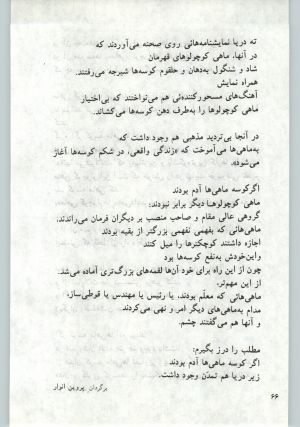 ته دریا نمایشنامه‌هائی روی صحنه می‌آوردند که
در آنها، ماهی کوچولوهای قهرمان
شاد و شنگول به‌دهان و حلقوم کوسه‌ها شیرجه می‌رفتند.
همراه نمایش
آهنگ‌های مسحورکننده‌ئی هم می‌نواختند که بی‌اختیار
ماهی کوچولوها را به‌طرف دهن کوسه‌ها می‌کشاند.
در آنجا بی‌تردید مذهبی هم وجود داشت که
به‌ماهی‌ها می‌آموخت که «زندگی واقعی، در شکم کوسه‌ها آغاز
می‌شود».
اگر کوسه ماهی‌ها آدم بودند
ماهی کوچولوها دیگر برابر نبودند:
گروهی عالی مقام و صاحب منصب بر دیگران فرمان می‌راندند،
ماهی‌هائی که بفهمی نفهمی بزرگتر از بقیه بودند
اجازه داشتند کوچکترها را میل کنند
واین‌خودش به‌نفع کوسه‌ها بود
چون از این راه برای خود آن‌ها لقمه‌های بزرگ‌تری آماده می‌شد.
از این مهم‌تر،
ماهی‌هائی که معلّم بودند، یا رئیس یا مهندس یا قوطی‌ساز،
مدام به‌ماهی‌های دیگر امر و نهی می‌کردند
و آنها هم می‌گفتند چشم.
مطلب را درز بگیرم:
اگر کوسه ماهی‌ها آدم بودند
زیر دریا هم تمدّن وجود داشت.
برگردان پروین انوار
۶۶